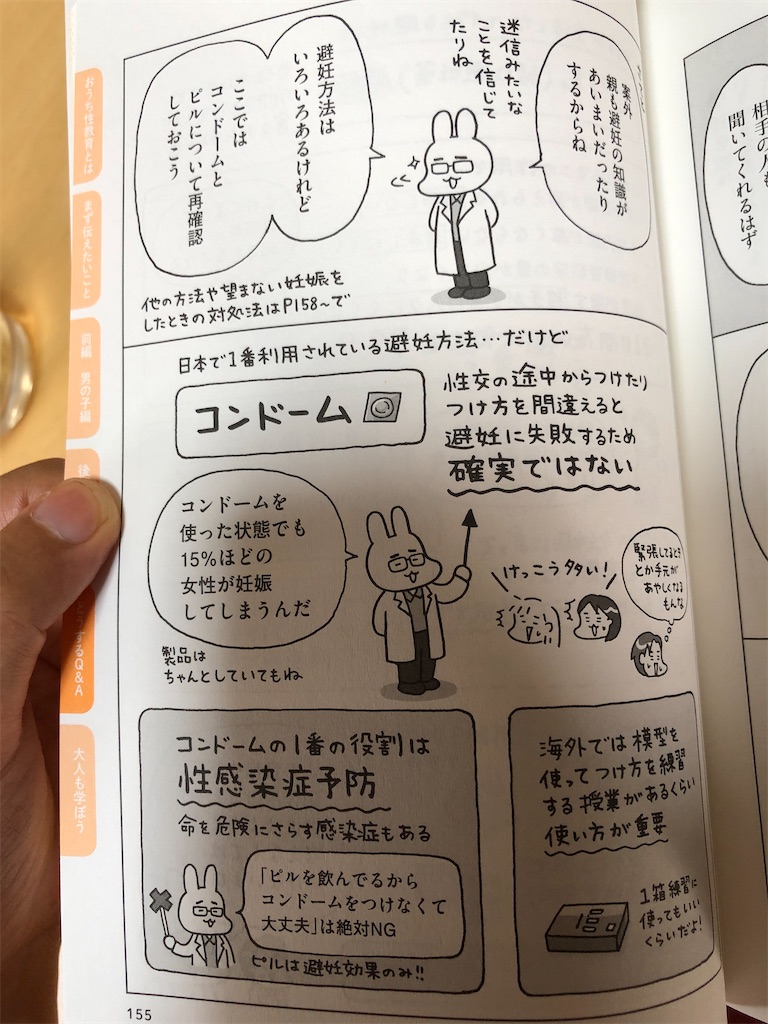 案外
親も避妊の知識が
あいまいだったり
するからね
迷信みたいな
ことを信じて
たりね
避妊方法は
いろいろあるけれど
ここでは
コンドームと
ピルについて再確認
しておこう
他の方法や望まない妊娠を
したときの対処法はP158〜で
日本で1番利用されている避妊方法…だけど
コンドーム
性交の途中からつけたり
つけ方を間違えると
避妊に失敗するため
確実ではない
コンドームを
使った状態でも
15%ほどの
女性が妊娠
してしまうんだ
製品は
ちゃんとしていてもね
けっこう多い!
緊張してるとき
とか手元が
あやしくなる
もんな
コンドームの1番の役割は
性感染症予防
命を危険にさらす感染症もある
「ピルを飲んでるから
コンドームをつけなくて
大丈夫」は絶対NG
ピルは避妊効果のみ!!
海外では模型を
使ってつけ方を練習
する授業があるくらい
使い方が重要
1箱練習に
使ってもいい
くらいだよ!
155
おうち性教育とは
まず伝えたいこと
前編 男の子編
後
どうするQ&A
大人も学ぼう
相手の人も
聞いてくれるはず